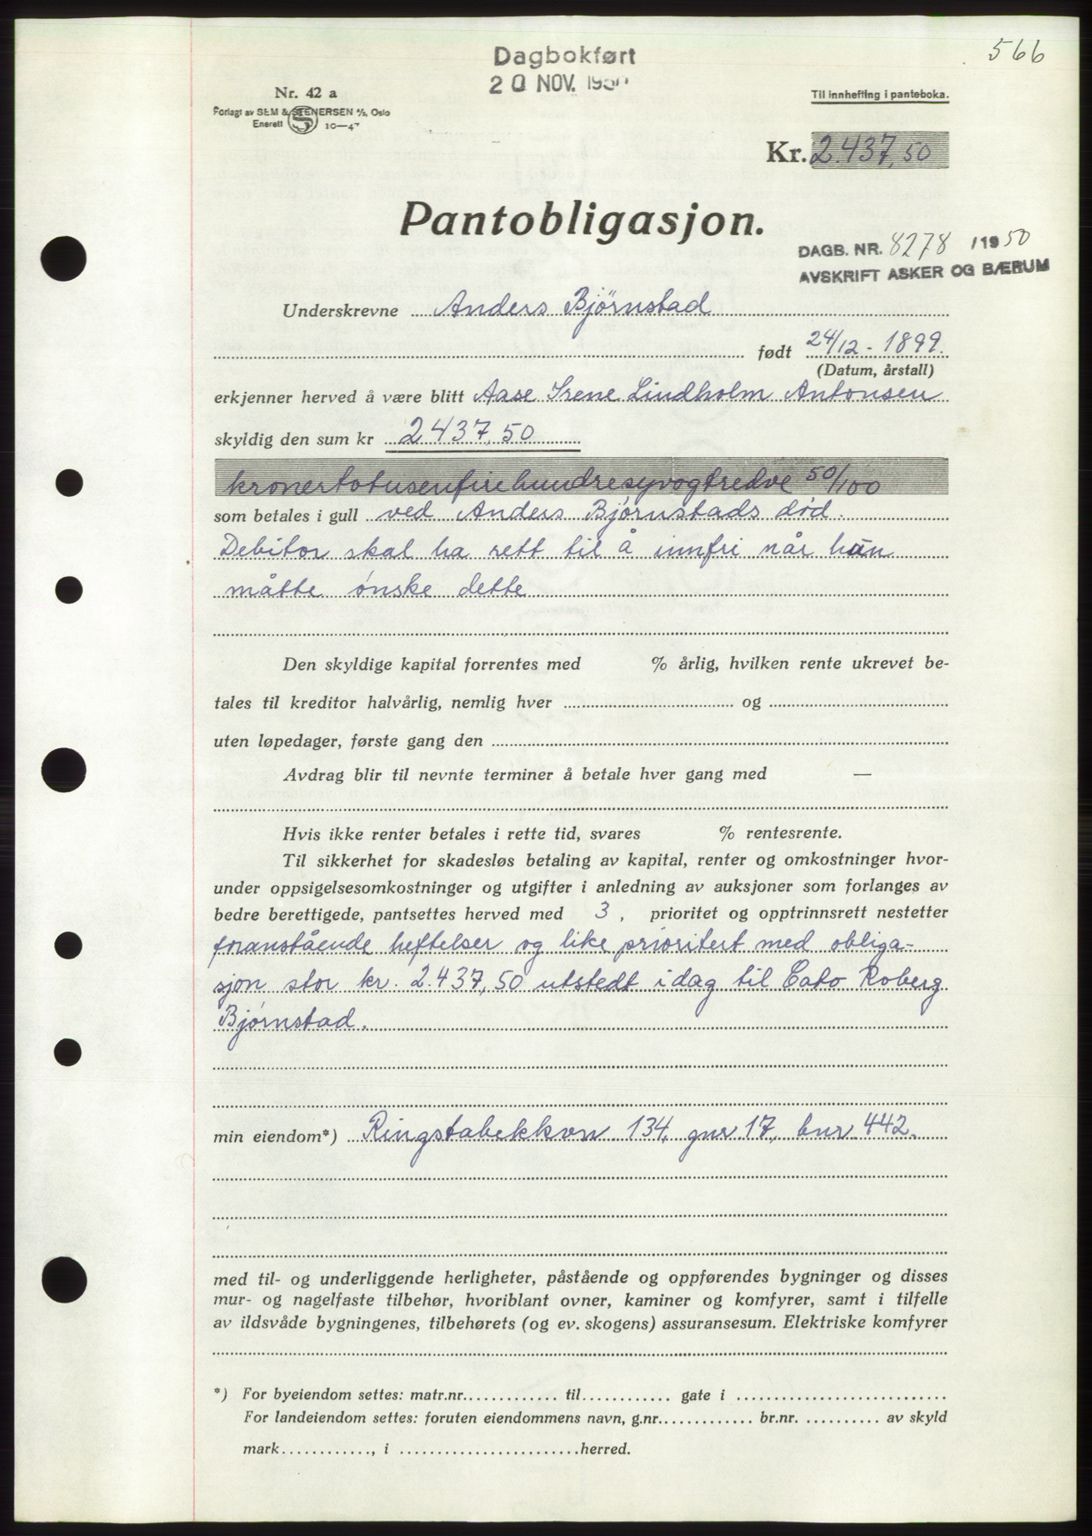 566
Dagbokført
20 NOV. 1950
Nr. 42 a
Forlagt av SEM & STENERSEN A/S, Oslo
Enerett S 10—47
Til innhefting i panteboka.
Kr. 2.437,50
Pantobligasjon.
DAGB. NR. 8278 /1950
AVSKRIFT ASKER OG BÆRUM
Underskrevne Anders Bjørnstad
født 24/12 - 1899.
(Datum, årstall)
erkjenner herved å være blitt Aase Irene Lindholm Antonsen
skyldig den sum kr 2437,50
kronertotusenfirehundresyvogtredve 50/100
som betales i gull ved Anders Bjørnstads død.
Debitor skal ha rett til å innfri når han
måtte ønske dette
Den skyldige kapital forrentes med % årlig, hvilken rente ukrevet be-
tales til kreditor halvårlig, nemlig hver og
uten løpedager, første gang den
Avdrag blir til nevnte terminer å betale hver gang med —
Hvis ikke renter betales i rette tid, svares % rentesrente.
Til sikkerhet for skadesløs betaling av kapital, renter og omkostninger hvor-
under oppsigelsesomkostninger og utgifter i anledning av auksjoner som forlanges av
bedre berettigede, pantsettes herved med 3, prioritet og opptrinnsrett nestetter
foranstående heftelser og like prioritert med obliga-
sjon stor kr. 2.437,50 utstedt i dag til Cato Roberg
Bjørnstad.
min eiendom*) Ringstabekkvn 134, gnr 17, bnr 442.
med til- og underliggende herligheter, påstående og oppførendes bygninger og disses
mur- og nagelfaste tilbehør, hvoriblant ovner, kaminer og komfyrer, samt i tilfelle
av ildsvåde bygningenes, tilbehørets (og ev. skogens) assuransesum. Elektriske komfyrer
*) For byeiendom settes: matr.nr. til gate i
For landeiendom settes: foruten eiendommens navn, g.nr. br.nr. av skyld
mark , i herred.